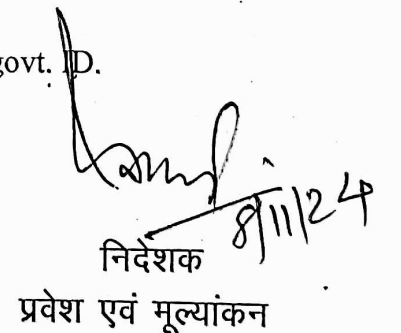 govt. ID.
8/11/24
निदेशक
प्रवेश एवं मूल्यांकन